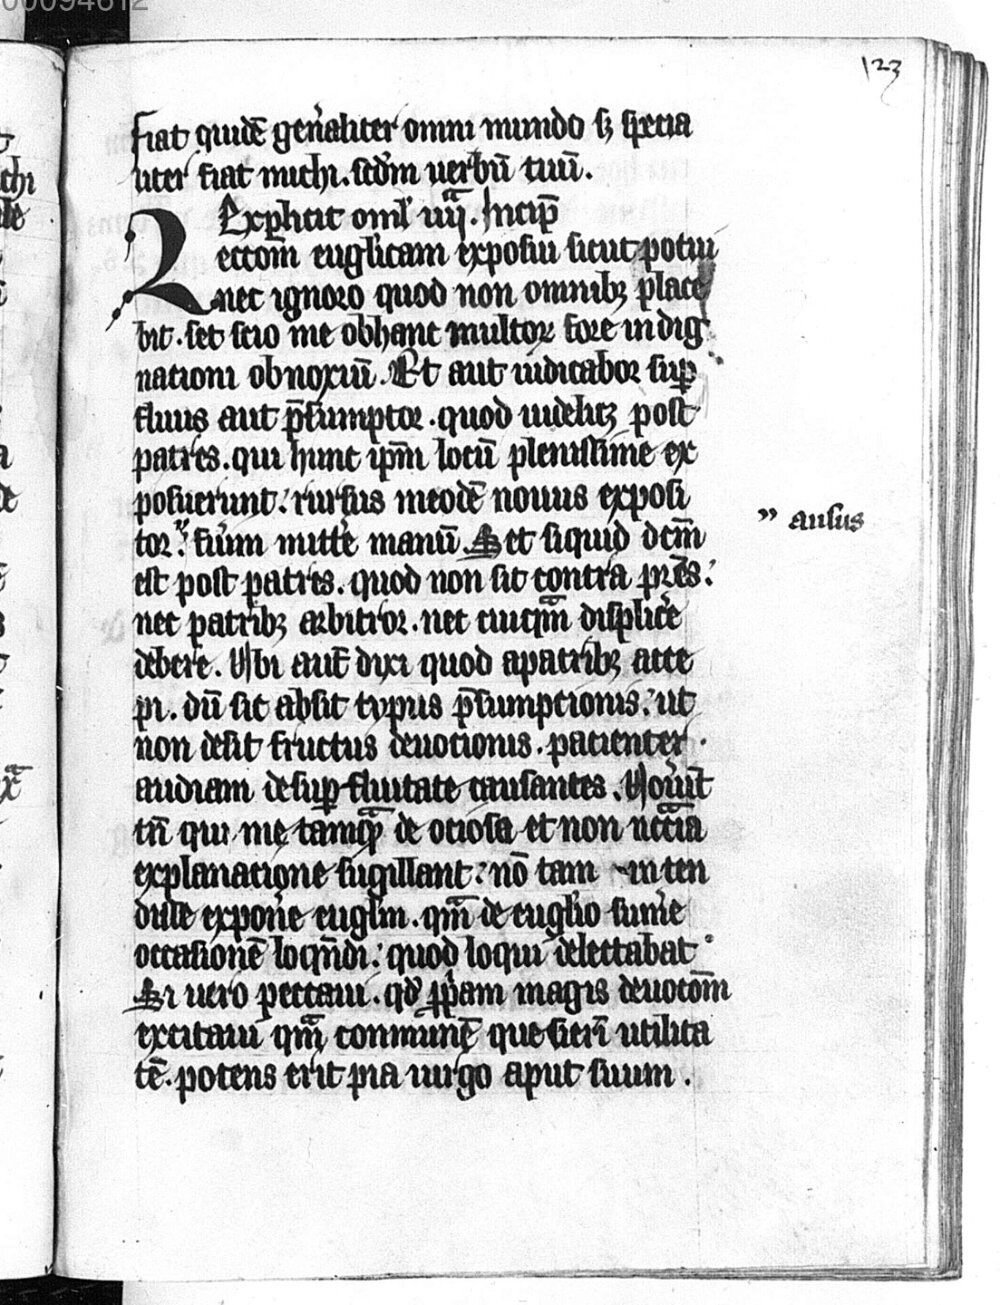 00094612
123
fiat quidē gen̄aliter omni mundo sꝫ specia
liter fiat michi. scd̄m uerbū tuū.
Explicit oml' iiij. Incip̄
Lectōm euglicam exposui sicut potui
nec ignoro quod non omnibꝫ place
bit. set scio me ob hanc multoꝝ fore indig
nationi obnoxiū. Et aut iudicabor sup̄
fluus aut p̄sumptor. quod uidelicꝫ post
patres. qui hunc ip̄m locū plenissime ex
posuerunt: rursus in eodē nouus exposi
tor: fu'im mitt'e manū. Set siquid dc̄m
” ausus
est post patres. quod non sit contra pr̄es:
nec patribꝫ arbitror. nec cuiqm̄ displice
debere. Ubi aut̄ dixi quod a patribꝫ acce
pi. dū sic absit typus p̄sumptionis: ut
non desit fructus deuotionis. pacienter
audiam de sup̄fluitate causantes. Nouīt
tn̄ qui me tāmq̄ de ociosa et non nēcc̄ia
explanatione sugillant: nō tam in ten
disse expon'e euglm̄. qm̄ de euglio sum'e
occasionē loqn̄di: quod loqui delectabat
Si uero peccaui. qd' p̄pam magis deuotōm
excitaui qm̄ communē quesieri utilita
tē. potens erit pia uirgo aput suum.